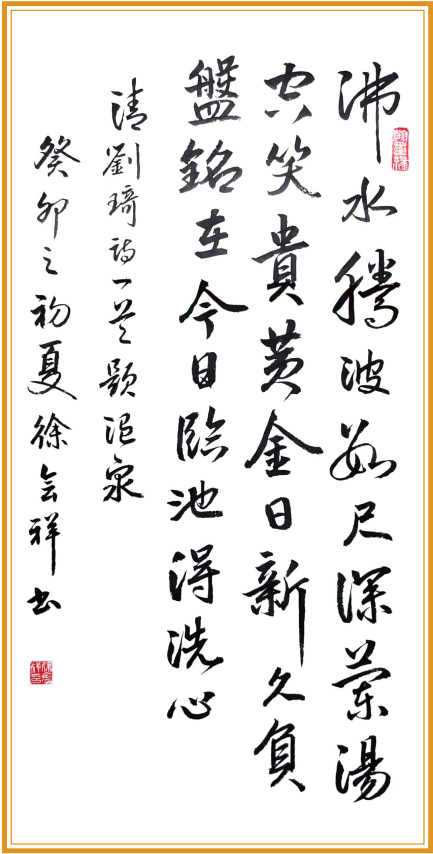 沸水騰波数尺深蘭湯
空笑貴黄金日新久負
盤銘在今日臨池得洗心
清劉琦詩一首題温泉
癸卯之初夏徐会祥书